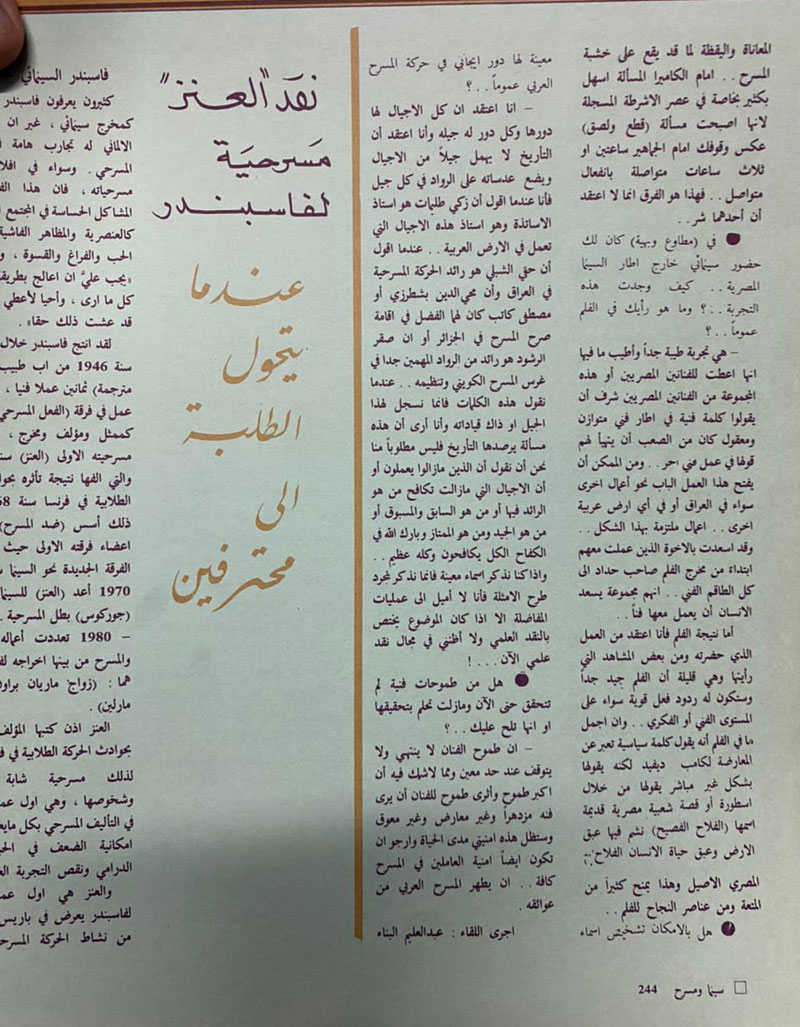 المعاناة واليقظة لما قد يقع على خشبة
المسرح . . امام الكاميرا المسألة اسهل
بكثير بخاصة في عصر الاشرطة المسجلة
لانها اصبحت مسألة (قطع ولصق)
عكس وقوفك امام الجماهير ساعتين او
ثلاث ساعات متواصلة بانفعال
متواصل . . فهذا هو الفرق انما لا اعتقد
أن أحدهما شر . .
● في (مطاوع وبهية) كان لك
حضور سينمائي خارج اطار السينما
المصرية . . كيف وجدت هذه
التجربة . . ؟ وما هو رأيك في الفلم
عموماً . . ؟
– هي تجربة طيبة جداً وأطيب ما فيها
انها اعطت للفنانين المصريين أو هذه
المجموعة من الفنانين المصريين شرف أن
يقولوا كلمة فنية في اطار فني متوازن
ومعقول كان من الصعب أن يتهيأ لهم
قولها في عمل فني آخر . . ومن الممكن أن
يفتح هذا العمل الباب نحو أعمال اخرى
سواء في العراق أو في أي ارض عربية
اخرى . . اعمال ملتزمة بهذا الشكل . .
وقد اسعدت بالاخوة الذين عملت معهم
ابتداءً من مخرج الفلم صاحب حداد الى
كل الطاقم الفني . . انهم مجموعة يسعد
الانسان أن يعمل معها فناً . .
أما نتيجة الفلم فأنا اعتقد من العمل
الذي حضرته ومن بعض المشاهد التي
رأيتها وهي قليلة أن الفلم جيد جداً
وستكون له ردود فعل قوية سواء على
المستوى الفني أو الفكري . . وان اجمل
ما في الفلم أنه يقول كلمة سياسية تعبر عن
المعارضة لكامب ديفيد لكنه يقولها
بشكل غير مباشر يقولها من خلال
اسطورة أو قصة شعبية مصرية قديمة
اسمها (الفلاح الفصيح) نشم فيها عبق
الارض وعبق حياة الانسان الفلاح
المصري الاصيل وهذا يمنح كثيراً من
المتعة ومن عناصر النجاح للفلم . .
● هل بالامكان تشخيص اسماء
معينة لها دور ايجابي في حركة المسرح
العربي عموماً . . ؟
– انا اعتقد ان كل الاجيال لها
دورها وكل دور له جيله وأنا اعتقد أن
التأريخ لا يهمل جيلاً من الاجيال
ويضع عدساته على الرواد في كل جيل
فأنا عندما اقول أن زكي طليمات هو استاذ
الاساتذة وهو استاذ هذه الاجيال التي
تعمل في الارض العربية . . عندما اقول
أن حقي الشبلي هو رائد الحركة المسرحية
في العراق وأن محي الدين بشطرزي أو
مصطفى كاتب كان لهما الفضل في اقامة
صرح المسرح في الجزائر أو ان صقر
الرشود هو رائد من الرواد المهمين جدا في
غرس المسرح الكويتي وتنظيمه . . عندما
نقول هذه الكلمات فانما نسجل لهذا
الجيل او ذاك قياداته وأنا أرى أن هذه
مسألة يرصدها التأريخ فليس مطلوباً منا
نحن أن نقول أن الذين مازالوا يعملون أو
أن الاجيال التي مازالت تكافح من هو
الرائد فيها أو من هو السابق والمسبوق أو
من هو الجيد ومن هو الممتاز وبارك الله في
الكفاح الكل يكافحون وكله عظيم . .
واذا كنا نذكر اسماء معينة فانما نذكر لمجرد
طرح الامثلة فأنا لا أميل الى عمليات
المفاضلة الا اذا كان الموضوع يختص
بالنقد العلمي ولا أظنني في مجال نقد
علمي الآن . . . !
● هل من طموحات فنية لم
تتحقق حتى الآن ومازلت تحلم بتحقيقها
او انها تلح عليك . . ؟
– ان طموح الفنان لا ينتهي ولا
يتوقف عند حد معين ومما لاشك فيه أن
اكبر طموح وأثرى طموح للفنان أن يرى
فنه مزدهراً وغير معارض وغير معوق
وستظل هذه امنيتي مدى الحياة وارجو ان
تكون ايضاً امنية العاملين في المسرح
كافة . . ان يطهر المسرح العربي من
عوائقه .
اجرى اللقاء : عبدالعليم البناء
نقد "العنز"
مسرحية
لفاسبندر
عندما
يتحول
الطلبة
الى
محترفين
فاسبندر السينمائي
كثيرون يعرفون فاسبندر
كمخرج سينمائي ، غير ان
الالماني له تجارب هامة
المسرحي . وسواء في افلا
مسرحياته ، فان هذا الف
المشاكل الحساسة في المجتمع
كالعنصرية والمظاهر الفاشية
الحب والفراغ والقسوة ، و
«يجب عليّ ان اعالج بطريقة
كل ما ارى ، وأحيا لأعطي
قد عشت ذلك حقا» .
لقد انتج فاسبندر خلال
سنة 1946 من اب طبيب
مترجمة) ثمانين عملا فنيا ،
عمل في فرقة (الفعل المسرحي
كممثل ومؤلف ومخرج ،
مسرحيته الاولى (العنز) سنة
والتي الفها نتيجة تأثره بحوا
الطلابية في فرنسا سنة 68
ذلك أسس (ضد المسرح)
اعضاء فرقته الاولى حيث
الفرقة الجديدة نحو السينما
1970 أعد (العنز) للسينما
(جوركوس) بطل المسرحية .
– 1980 تعددت أعماله
والمسرح من بينها اخراجه لف
هما : (زواج ماريان براون
مارلين) .
العنز اذن كتبها المؤلف
بحوادث الحركة الطلابية في ف
لذلك مسرحية شابة
وشخوصها ، وهي اول عم
في التأليف المسرحي بكل مايع
امكانية الضعف في الحو
الدرامي ونقص التجربة الع
والعنز هي اول عم
لفاسبندر يعرض في باريس
من نشاط الحركة المسرح
سينما ومسرح 244